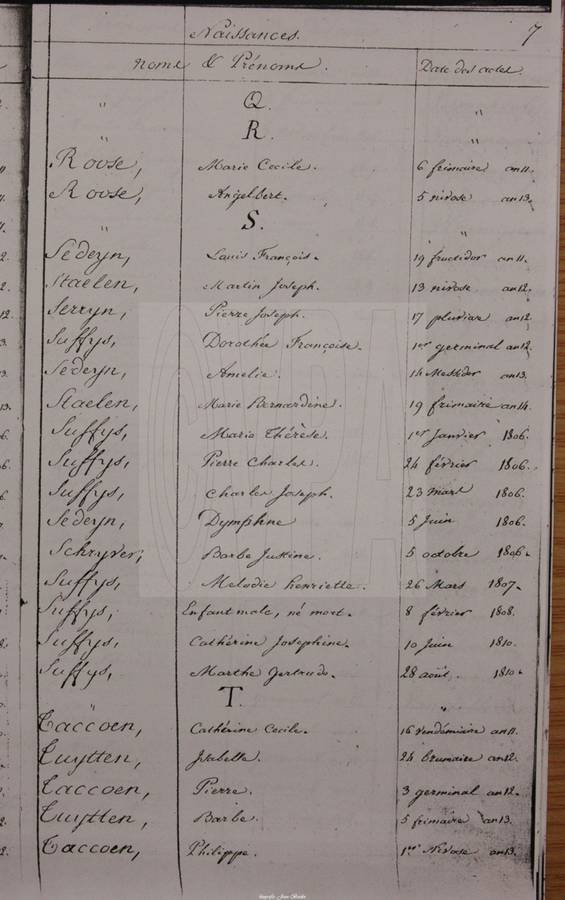 Naissances. 7
noms & Prénoms. Date des actes.
" Q. "
" R. "
Roose, Marie Cecile. 6 frimaire an 11.
Roose, Angelbert. 5 nivose an 13.
" S. "
Sedeyn, Louis François. 19 fructidor an 11.
Staelen, Martin Joseph. 13 nivose an 12.
Serryn, Pierre Joseph. 17 pluviose an 12
Suffys, Dorothée Françoise. 1er germinal an 12.
Sedeyn, Amelie. 14 Messidor an 13.
Staelen, Marie Bernardine. 19 frimaire an 14.
Suffys, Marie Thérèse. 1er Janvier 1806.
Suffys, Pierre Charles. 24 février 1806.
Suffys, Charles Joseph. 23 mars 1806.
Sedeyn, Dymphne 5 Juin 1806.
Schryver, Barbe Justine. 5 octobre 1806.
Suffys, Melodie henriette. 26 Mars 1807.
Suffys, Enfant male, né mort. 8 février 1808.
Suffys, Cathérine Josephine. 10 Juin 1810.
Suffys, Marthe Gertrude. 28 août. 1810.
" T. "
Taccoen, Cathérine Cecile. 16 vendémiaire an 11.
Tuytten, Isabelle. 24 brumaire an 12.
Taccoen, Pierre. 3 germinal an 12.
Tuytten, Barbe. 5 frimaire an 13.
Taccoen, Philippe. 1er Nivose an 13.